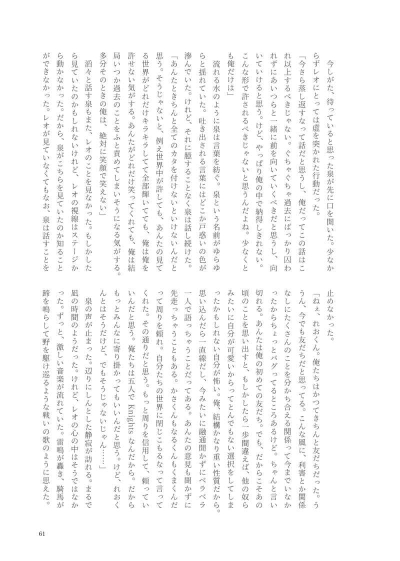 今しがた、待っていると思った泉が先に口を開いた。少なか
らずレオにとっては虚を突かれた行動だった。
「今さら蒸し返すなって話だと思うし、俺だってこの話はこ
れ以上するべきじゃない。ぐちゃぐちゃ過去にばっかり囚わ
れずにあいつらと一緒に前を向いていくべきだと思うし、向
いていけると思う。けど、やっぱり俺の中で納得しきれない。
こんな形で許されるべきじゃないと思うんだよね。少なくと
も俺だけは」
流れる水のように泉は言葉を紡ぐ。泉という名前がゆらゆ
らと揺れていた。吐き出される言葉にはどこか戸惑いの色が
滲んでいた。けれど、それに臆することなく泉は話し続けた。
「あんたときちんと全てのカタを付けないといけないんだと
思う。そうじゃないと、例え世界中が許しても、あんたの見て
る世界がどれだけキラキラしてて全部輝いてても、俺は俺を
許せない気がする。あんたがどれだけ笑ってくれても、俺は結
局いつか過去のことをふと責めてしまいそうになる気がする。
多分そのときの俺は、絶対に笑顔で笑えない」
滔々と話す泉もまた、レオのことを見なかった。もしかした
ら見ていたのかもしれないけれど、レオの視線はステージか
ら動かなかった。だから、泉がこちらを見ていたのか知ること
ができなかった。レオが見ていなくてもなお、泉は話すことを
止めなかった。
「ねぇ、れおくん。俺たちはかつてきちんと友だちだった。う
うん、今でも友だちだと思ってる。こんな風に、利害とか関係
なしにたくさんのことを分かち合える関係って今までいなか
ったからちょっとバグってるところあるけど、ちゃんと言い
切れる。あんたは俺の初めての友だち。でも、だからこそあの
頃のことを思い出すと、もしかしたら一歩間違えば、他の奴ら
みたいに自分が可愛いからってとんでもない選択をしてしま
ったかもしれない自分が怖い。俺、結構かなり重い性質だから。
思い込んだら一直線だし、今みたいに融通聞かずにベラベラ
一人で語っちゃうことだってある。あんたの意見も聞かずに
先走っちゃうこともある。かさくんもなるくんもくまくんだ
って周りを頼れ、自分たちの世界に閉じこもるなって言って
くれた。その通りだと思う。もっと周りを信用して、頼ってい
いんだと思う。俺たちは五人で Knights なんだから。だから
もっとみんなに寄り掛かってもいいんだと思う。けど、れおく
んとはそうだけど、でもそうじゃないじゃん……」
泉の声が止まった。辺りにしんとした静寂が訪れる。まるで
凪の時間のようだった。けれど、レオの心の中はそうではなか
った。ずっと、激しい音楽が流れていた。雷鳴が轟き、騎馬が
蹄を鳴らして野を駆け巡るような戦いの歌のように思えた。
61